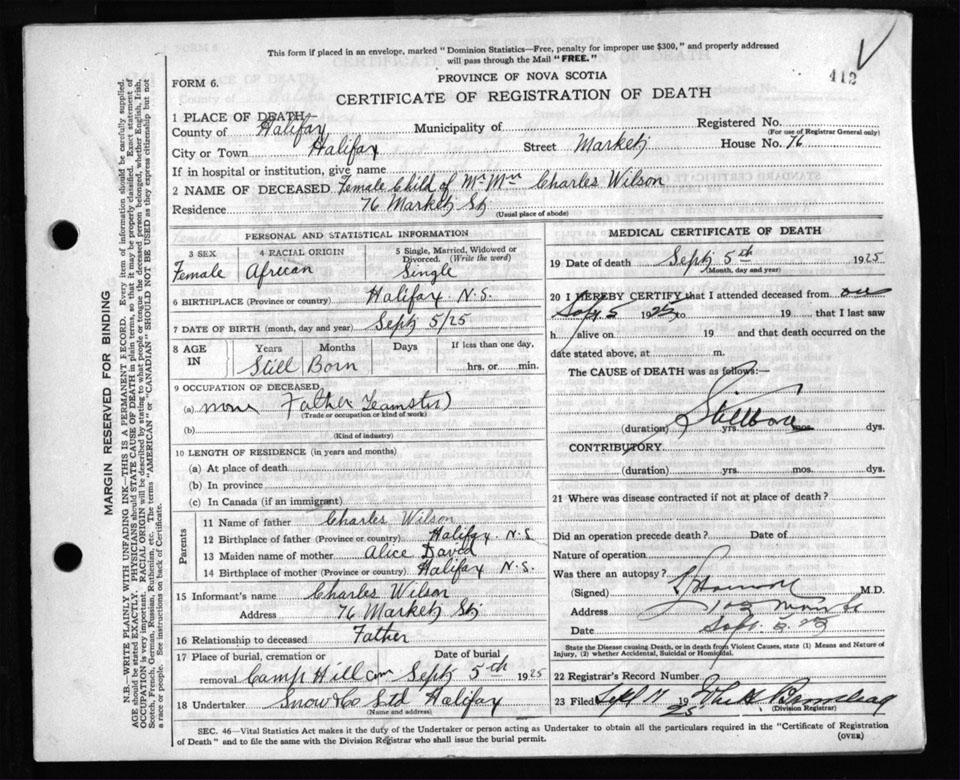 This form if placed in an envelope, marked "Dominion Statistics—Free, penalty for improper use $300," and properly addressed
will pass through the Mail "FREE."
412
FORM 6.
PROVINCE OF NOVA SCOTIA
CERTIFICATE OF REGISTRATION OF DEATH
1 PLACE OF DEATH
County of Halifax Municipality of Registered No.
(For use of Registrar General only)
City or Town Halifax Street Market House No. 76
If in hospital or institution, give name
2 NAME OF DECEASED Female Child of Mr Mrs Charles Wilson
Residence 76 Market St
(Usual place of abode)
PERSONAL AND STATISTICAL INFORMATION
3 SEX 4 RACIAL ORIGIN 5 Single, Married, Widowed or
Divorced. (Write the word)
Female African Single
6 BIRTHPLACE (Province or country) Halifax N.S.
7 DATE OF BIRTH (month, day and year) Sept 5/25
8 AGE IN Years Months Days If less than one day,
Still Born hrs. or min.
9 OCCUPATION OF DECEASED
(a) none Father Teamster
(Trade or occupation or kind of work)
(b)
(Kind of industry)
10 LENGTH OF RESIDENCE (in years and months)
(a) At place of death
(b) In province
(c) In Canada (if an immigrant)
Parents
11 Name of father Charles Wilson
12 Birthplace of father (Province or country) Halifax. N.S
13 Maiden name of mother Alice David
14 Birthplace of mother (Province or country) Halifax N.S.
15 Informant's name Charles Wilson
Address 76 Market St
16 Relationship to deceased Father
17 Place of burial, cremation or Date of burial
removal Camp Hill Cem Sept 5th 1925
18 Undertaker Snow & Co Ltd Halifax
(Name and address)
MEDICAL CERTIFICATE OF DEATH
19 Date of death Sept 5th 1925
(Month, day and year)
20 I HEREBY CERTIFY that I attended deceased from on
Sept 5 1925 to 19 that I last saw
h alive on 19 and that death occurred on the
date stated above, at m.
The CAUSE of DEATH was as follows:—
Stillborn
(duration) yrs. mos. dys.
CONTRIBUTORY.
(duration) yrs. mos. dys.
21 Where was disease contracted if not at place of death?
Did an operation precede death? Date of
Nature of operation
Was there an autopsy?
(Signed) M.D.
Address
Date Sept. 5. 25
State the Disease causing Death, or in death from Violent Causes, state (1) Means and Nature of
Injury, (2) whether Accidental, Suicidal or Homicidal.
22 Registrar's Record Number
23 Filed Sept 11 1925
(Division Registrar)
SEC. 46—Vital Statistics Act makes it the duty of the Undertaker or person acting as Undertaker to obtain all the particulars required in the "Certificate of Registration
of Death" and to file the same with the Division Registrar who shall issue the burial permit.
(OVER)
MARGIN RESERVED FOR BINDING
N.B.—WRITE PLAINLY WITH UNFADING INK—THIS IS A PERMANENT RECORD. Every item of information should be carefully supplied.
AGE should be stated EXACTLY. PHYSICIANS should STATE CAUSE OF DEATH in plain terms, so that it may be properly classified. Exact statement of
OCCUPATION is very important. RACIAL ORIGIN will be described by stating to what people or race the deceased person belonged, whether English, Irish,
Scotch, French, German, Russian, Ruthenian, etc. The terms "AMERICAN" or "CANADIAN" SHOULD NOT BE USED as they express citizenship but not
a race or people. See instructions on back of Certificate.